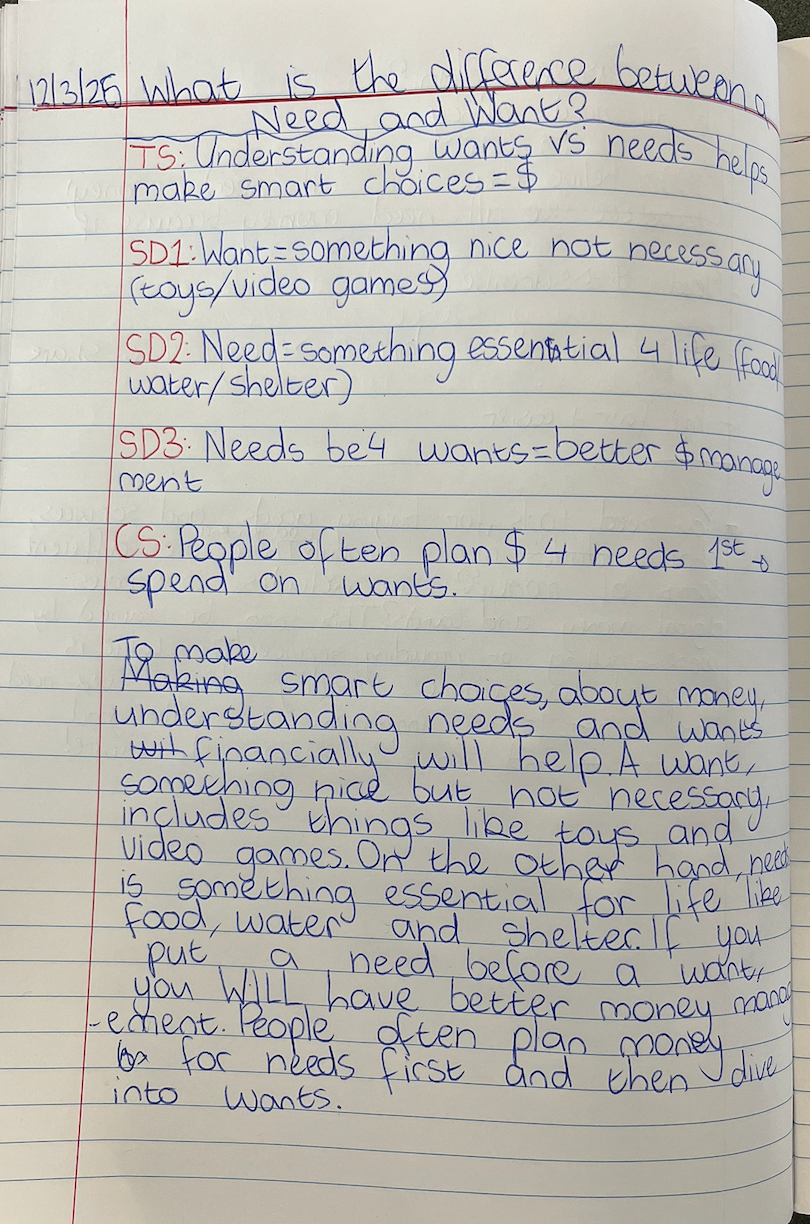 12/3/25 What is the difference between a
Need and Want?
TS: Understanding wants vs needs helps
make smart choices = $
SD1: Want = something nice not necessary
(toys/video games)
SD2: Need = something essential 4 life (food
water/shelter)
SD3: Needs be4 wants = better $ manage
ment
CS: People often plan $ 4 needs 1st →
spend on wants.
To make
Making smart choices, about money,
understanding needs and wants
with financially will help. A want,
something nice but not necessary,
includes things like toys and
video games. On the other hand, need
is something essential for life like
food, water and shelter. If you
put a need before a want,
you WILL have better money manag
-ement. People often plan money
for needs first and then dive
into wants.